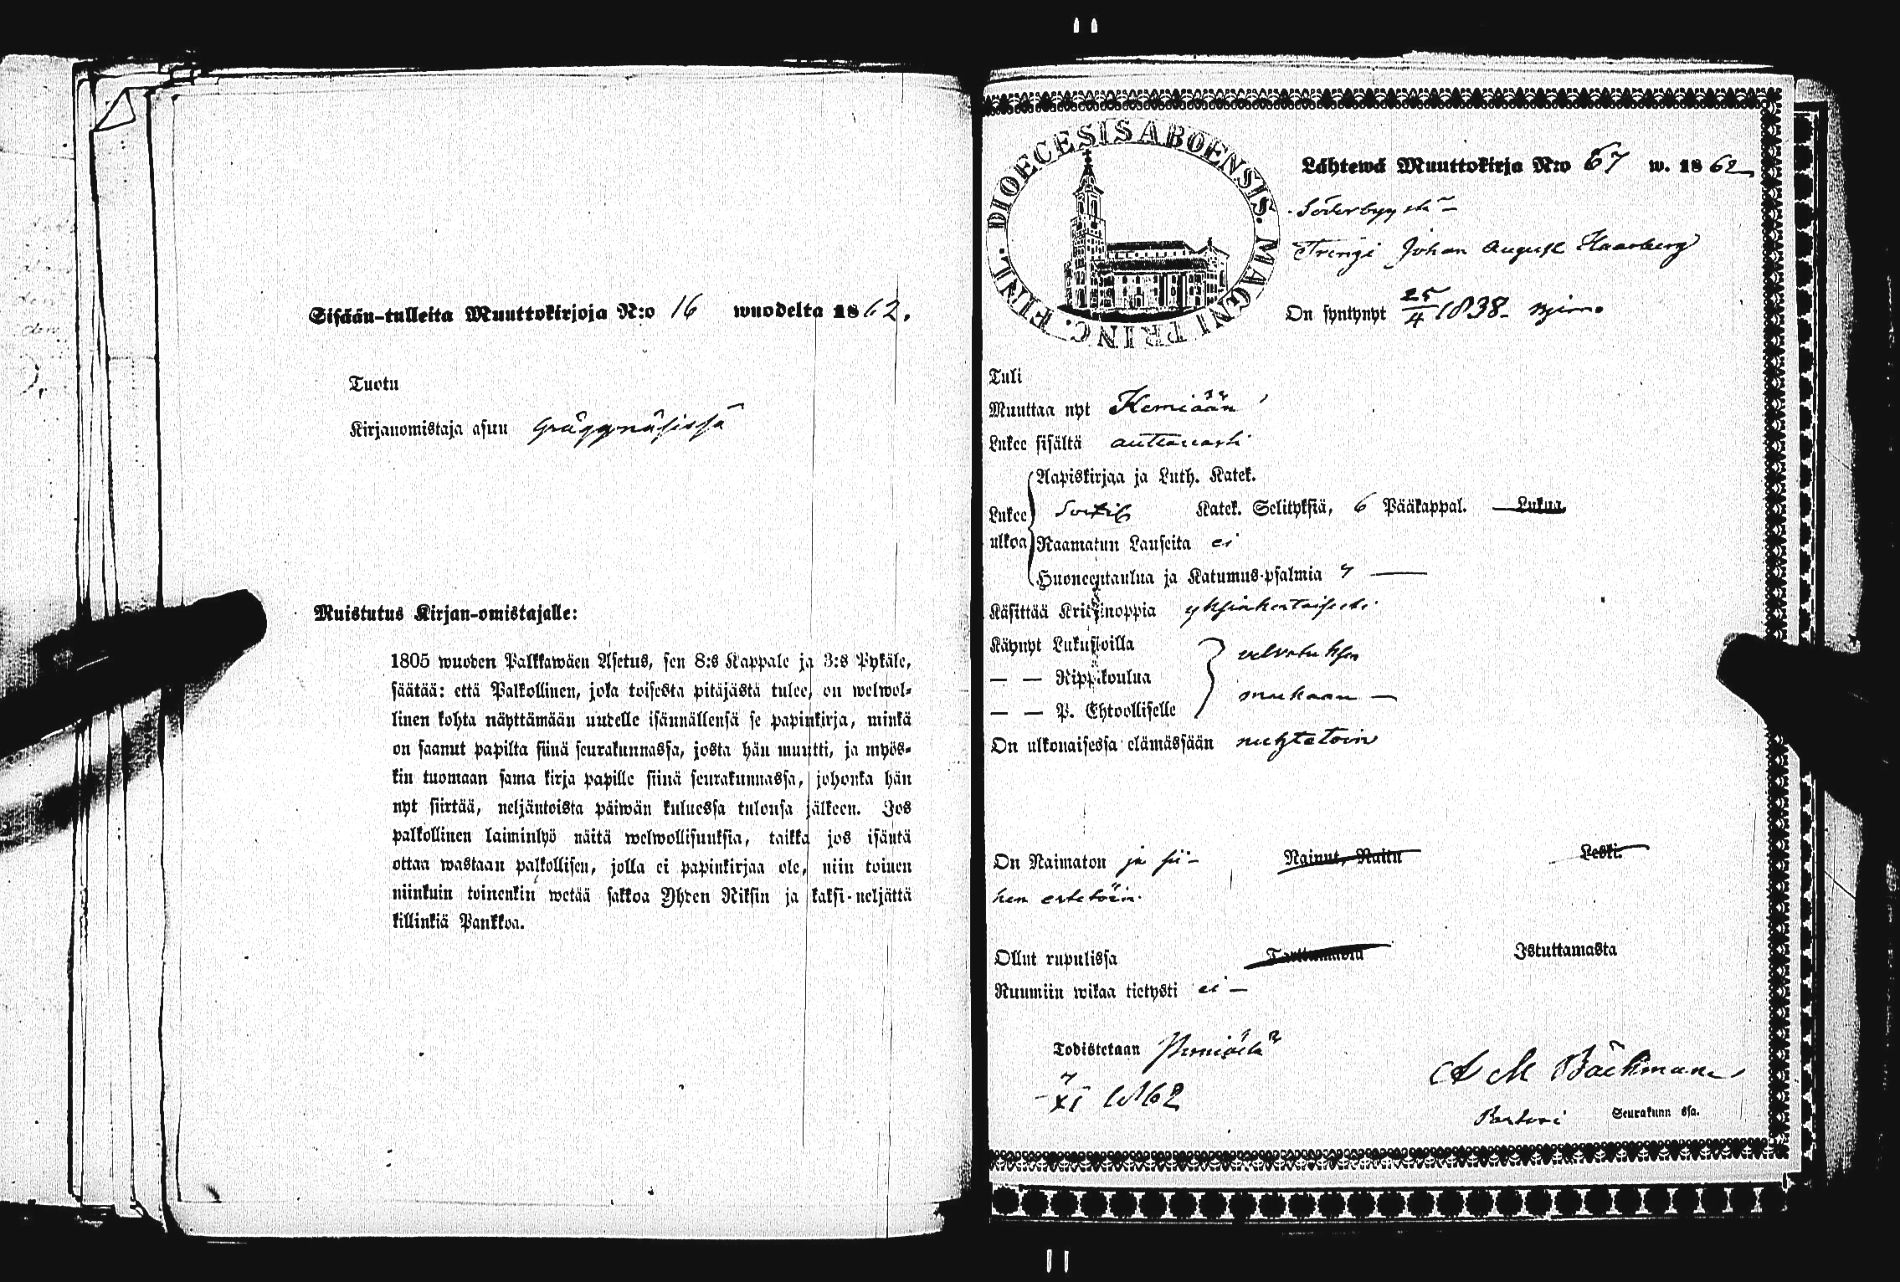 Sisään-tulleita Muuttokirjoja N:o 16 wuodelta 1862.
Tuotu
Kirjanomistaja asuu Gräggnäsissä
Muistutus Kirjan-omistajalle:
1805 wuoden Palkkawäen Asetus, sen 8:s Kappale ja 3:s Pykäle,
säätää: että Palkollinen, joka toisesta pitäjästä tulee, on welwol-
linen kohta näyttämään uudelle isännällensä se papinkirja, minkä
on saanut papilta siinä seurakunnassa, josta hän muutti, ja myös-
kin tuomaan sama kirja papille siinä seurakunnassa, johonka hän
nyt siirtää, neljäntoista päiwän kuluessa tulonsa jälkeen. Jos
palkollinen laiminlyö näitä welwollisuuksia, taikka jos isäntä
ottaa wastaan palkollisen, jolla ei papinkirjaa ole, niin toinen
niinkuin toinenkin wetää sakkoa Yhden Riksin ja kaksi-neljättä
killinkiä Pankkoa.
FINL. DIOECESIS ABOENSIS. MAGNI PRINC.
Lähtewä Muuttokirja N:o 67 w. 1862
Söderbyystä
Trengi Johan August Haarberg
On syntynyt 25/4 1838
Tuli
Muuttaa nyt Kemiöön
Lukee sisältä auttavasti
Aapiskirjaa ja Luth. Katek.
Lukee ulkoa
Katek. Selityksiä, 6 Pääkappal. Lukua
Raamatun Lauseita ei
Huoneentaulua ja Katumus-psalmia 7
Käsittää Kristinoppia yksinkertaisesti
Käynyt Lukusioilla velvotuksen
— — Rippikoulua mukaan —
— — P. Ehtoolliselle
On ulkonaisessa elämässään nuhtetoin
On Naimaton ja sii- Nainut, Naitu Leski.
hen estetöin.
Ollut rupulissa Tarttumasta Istuttamasta
Ruumiin wikaa tietysti ei —
Todistetaan Perniöstä
7/XI 1862
A M Bäckman
Pastori Seurakunnassa.